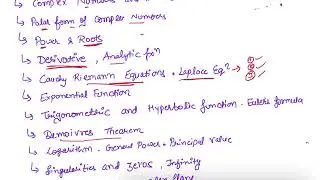 ↳ Complex Numbers and
↳ Polar form of Complex Numbers
↳ Power & Roots
↳ Derivative, Analytic fxⁿ
↳ Cauchy Riemann Equations & Laplace Eqⁿ →
↳ Exponential Function
↳ Trigonometric and Hyperbolic function. Euler's formula
↳ Demoivres Theorem
↳ Logarithm. General Power. Principal Value
↳ Singularities and Zeros, Infinity
plane